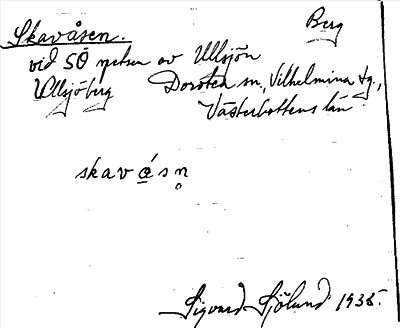 Skavåsen. Berg
vid SÖ spetsen av Ullsjön
Ullsjöberg Dorotea sn., Vilhelmina tg.,
Västerbottens län
skavǻsn̥
Sigvard Sjölund 1935.